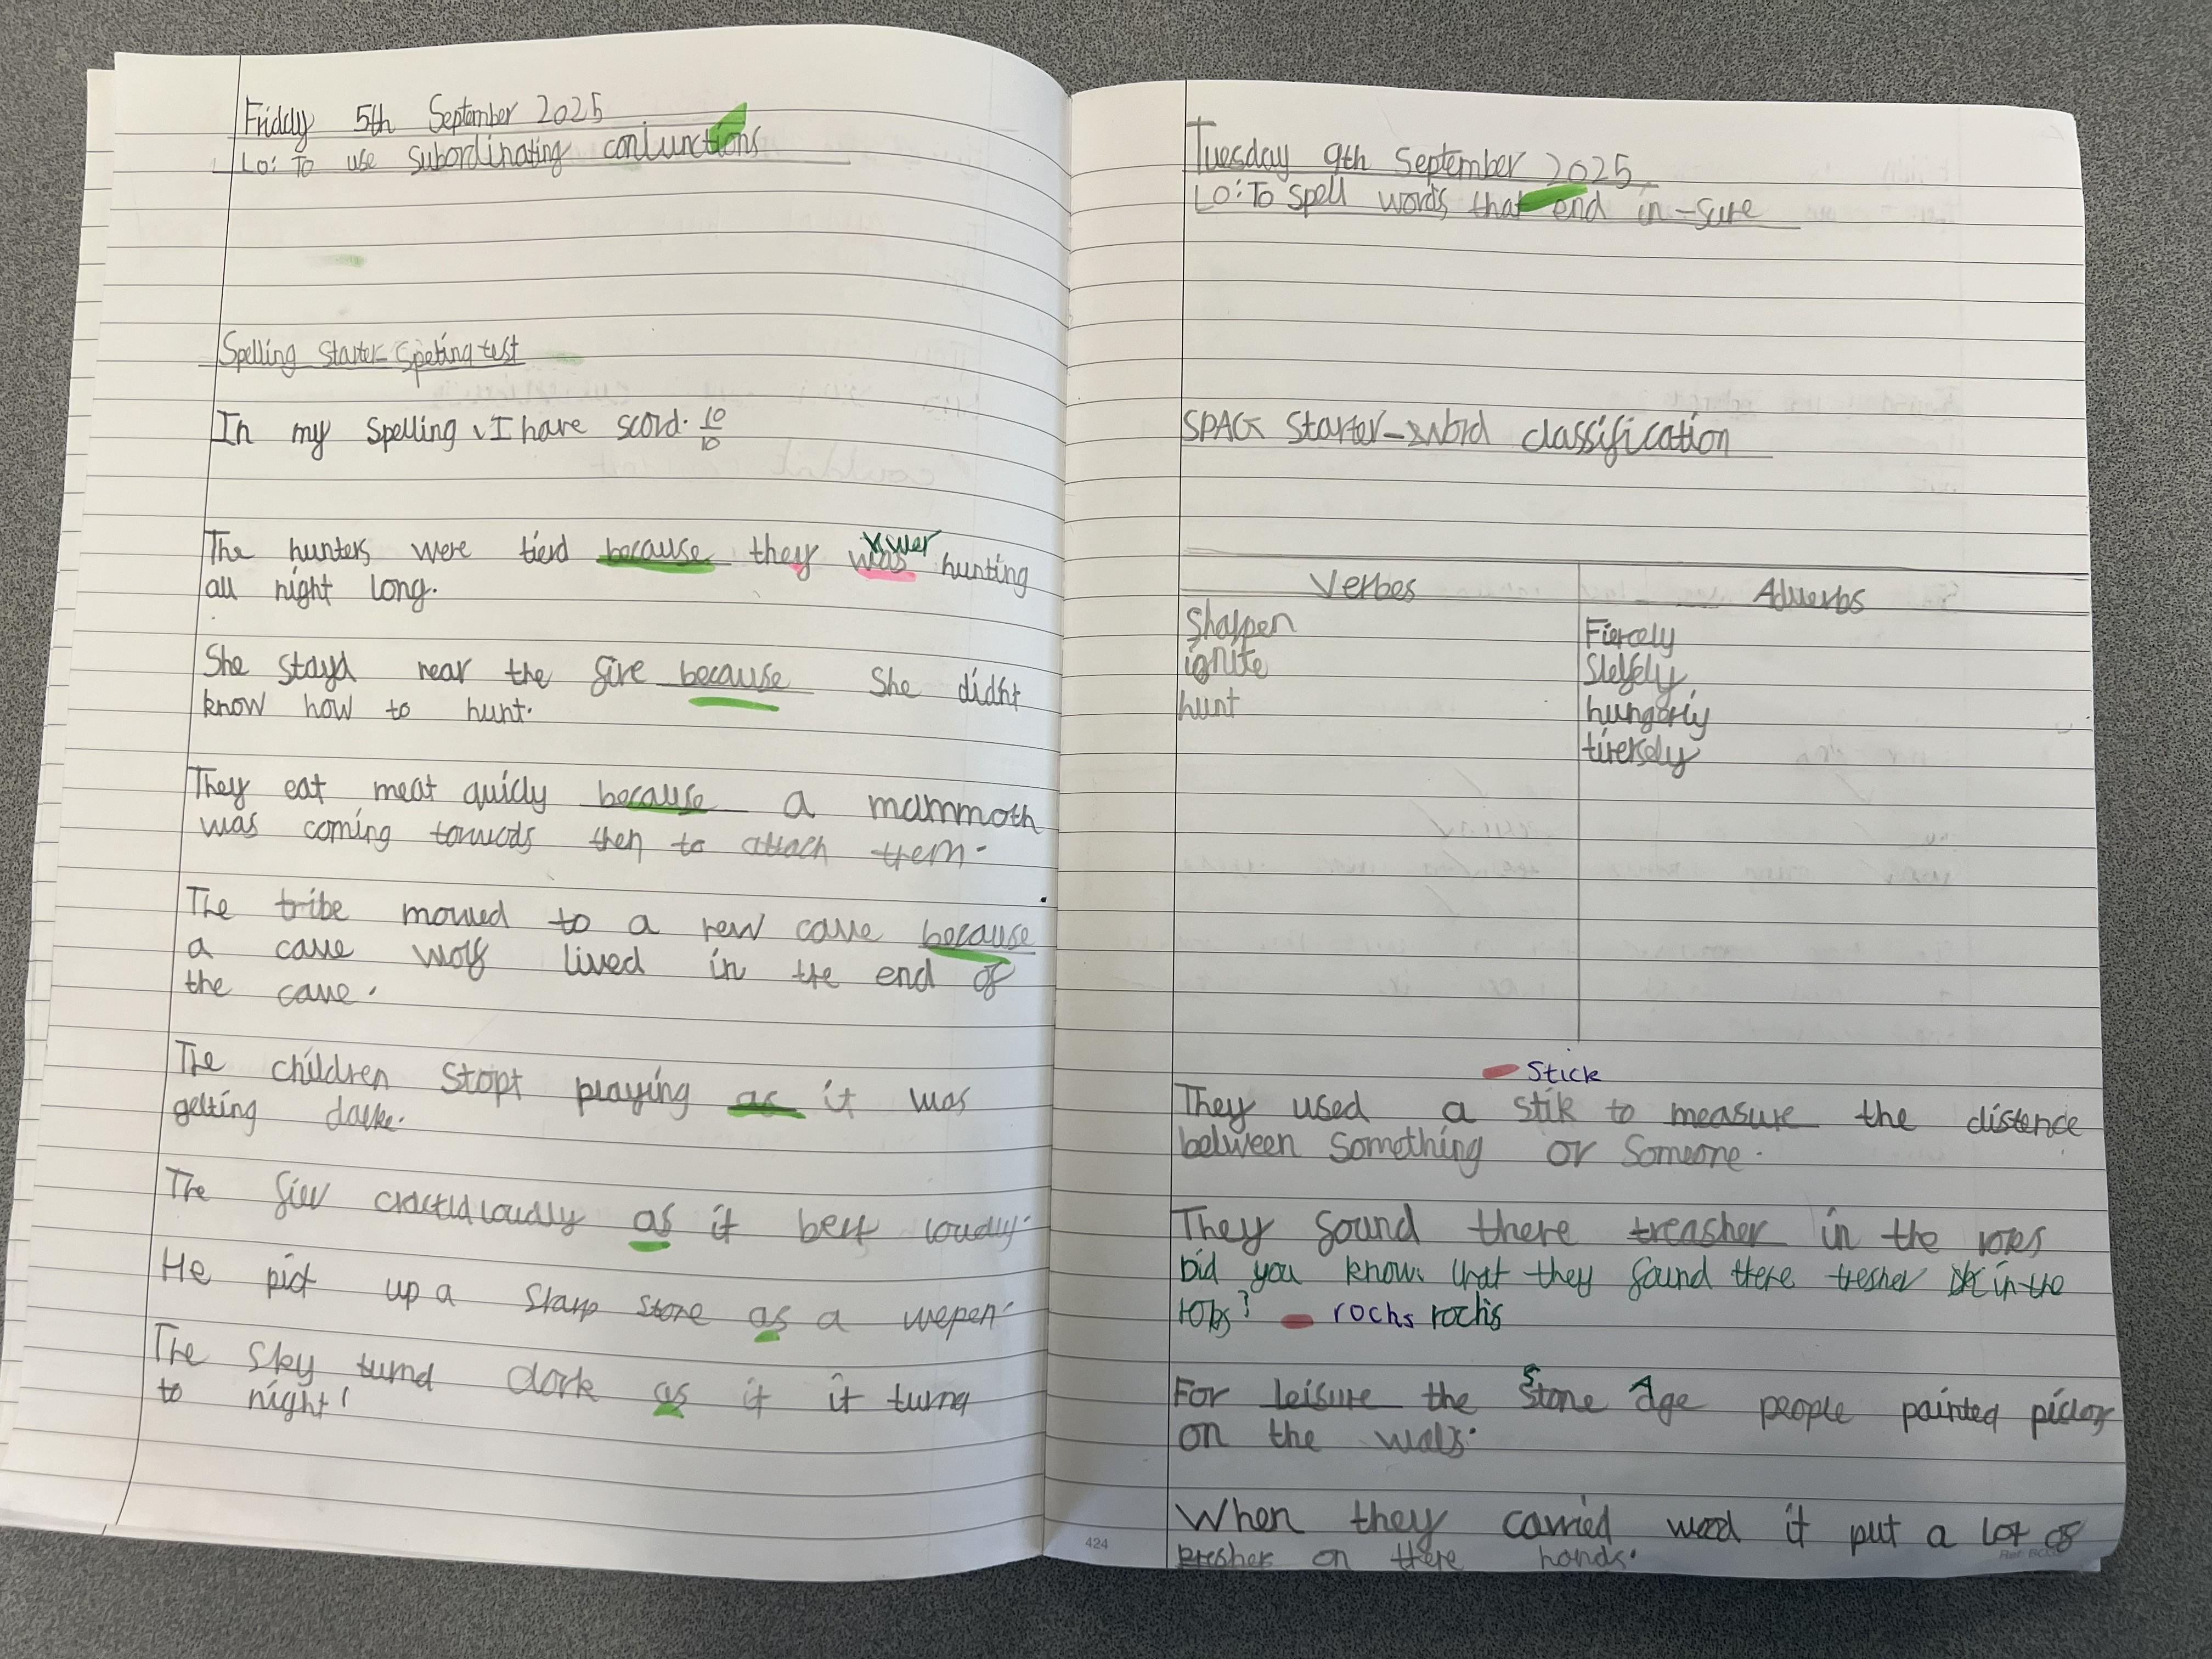 Friday 5th September 2025
Lo: To use subordinating conjunctions
Spelling starter - Spelling test
In my spelling, I have scord. 10/10
wer
The hunters were tierd because they was hunting
all night long.
She stayd near the fire because She didnt
know how to hunt.
They eat meat quicly because a mammoth
was coming towods then to attach them.
The tribe moved to a new cave because
a cave wolf lived in the end of
the cave.
The children stopt playing as it was
getting darke.
The loudly as it loudly.
He pict up a sharp stone as a wepen.
The sky turnd dark as it it turnd
to night!
424
Tuesday 9th September 2025
Lo: To spell words that end in -sure
SPAG Starter - word classification
Verbes Adverbs
Sharpen Fiercely
ignite
hunt hungoriy
Stick
They used a stik to measure the distence
between something or someone.
They found there treasher in the
Did you know that they found there tresher in the
rochs rochs
For leisure the Stone Age people painted
on the wals.
When they carried wood it put a lot of
presher on there hands.